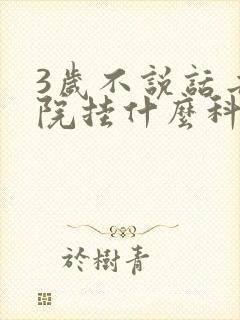 3歲不說話
院挂什麼科
於樹青